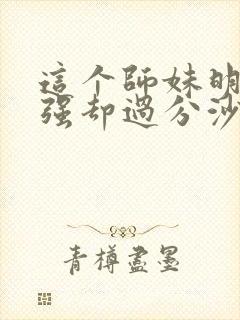 這个師妹明
强却過分沙
青樽盡墨